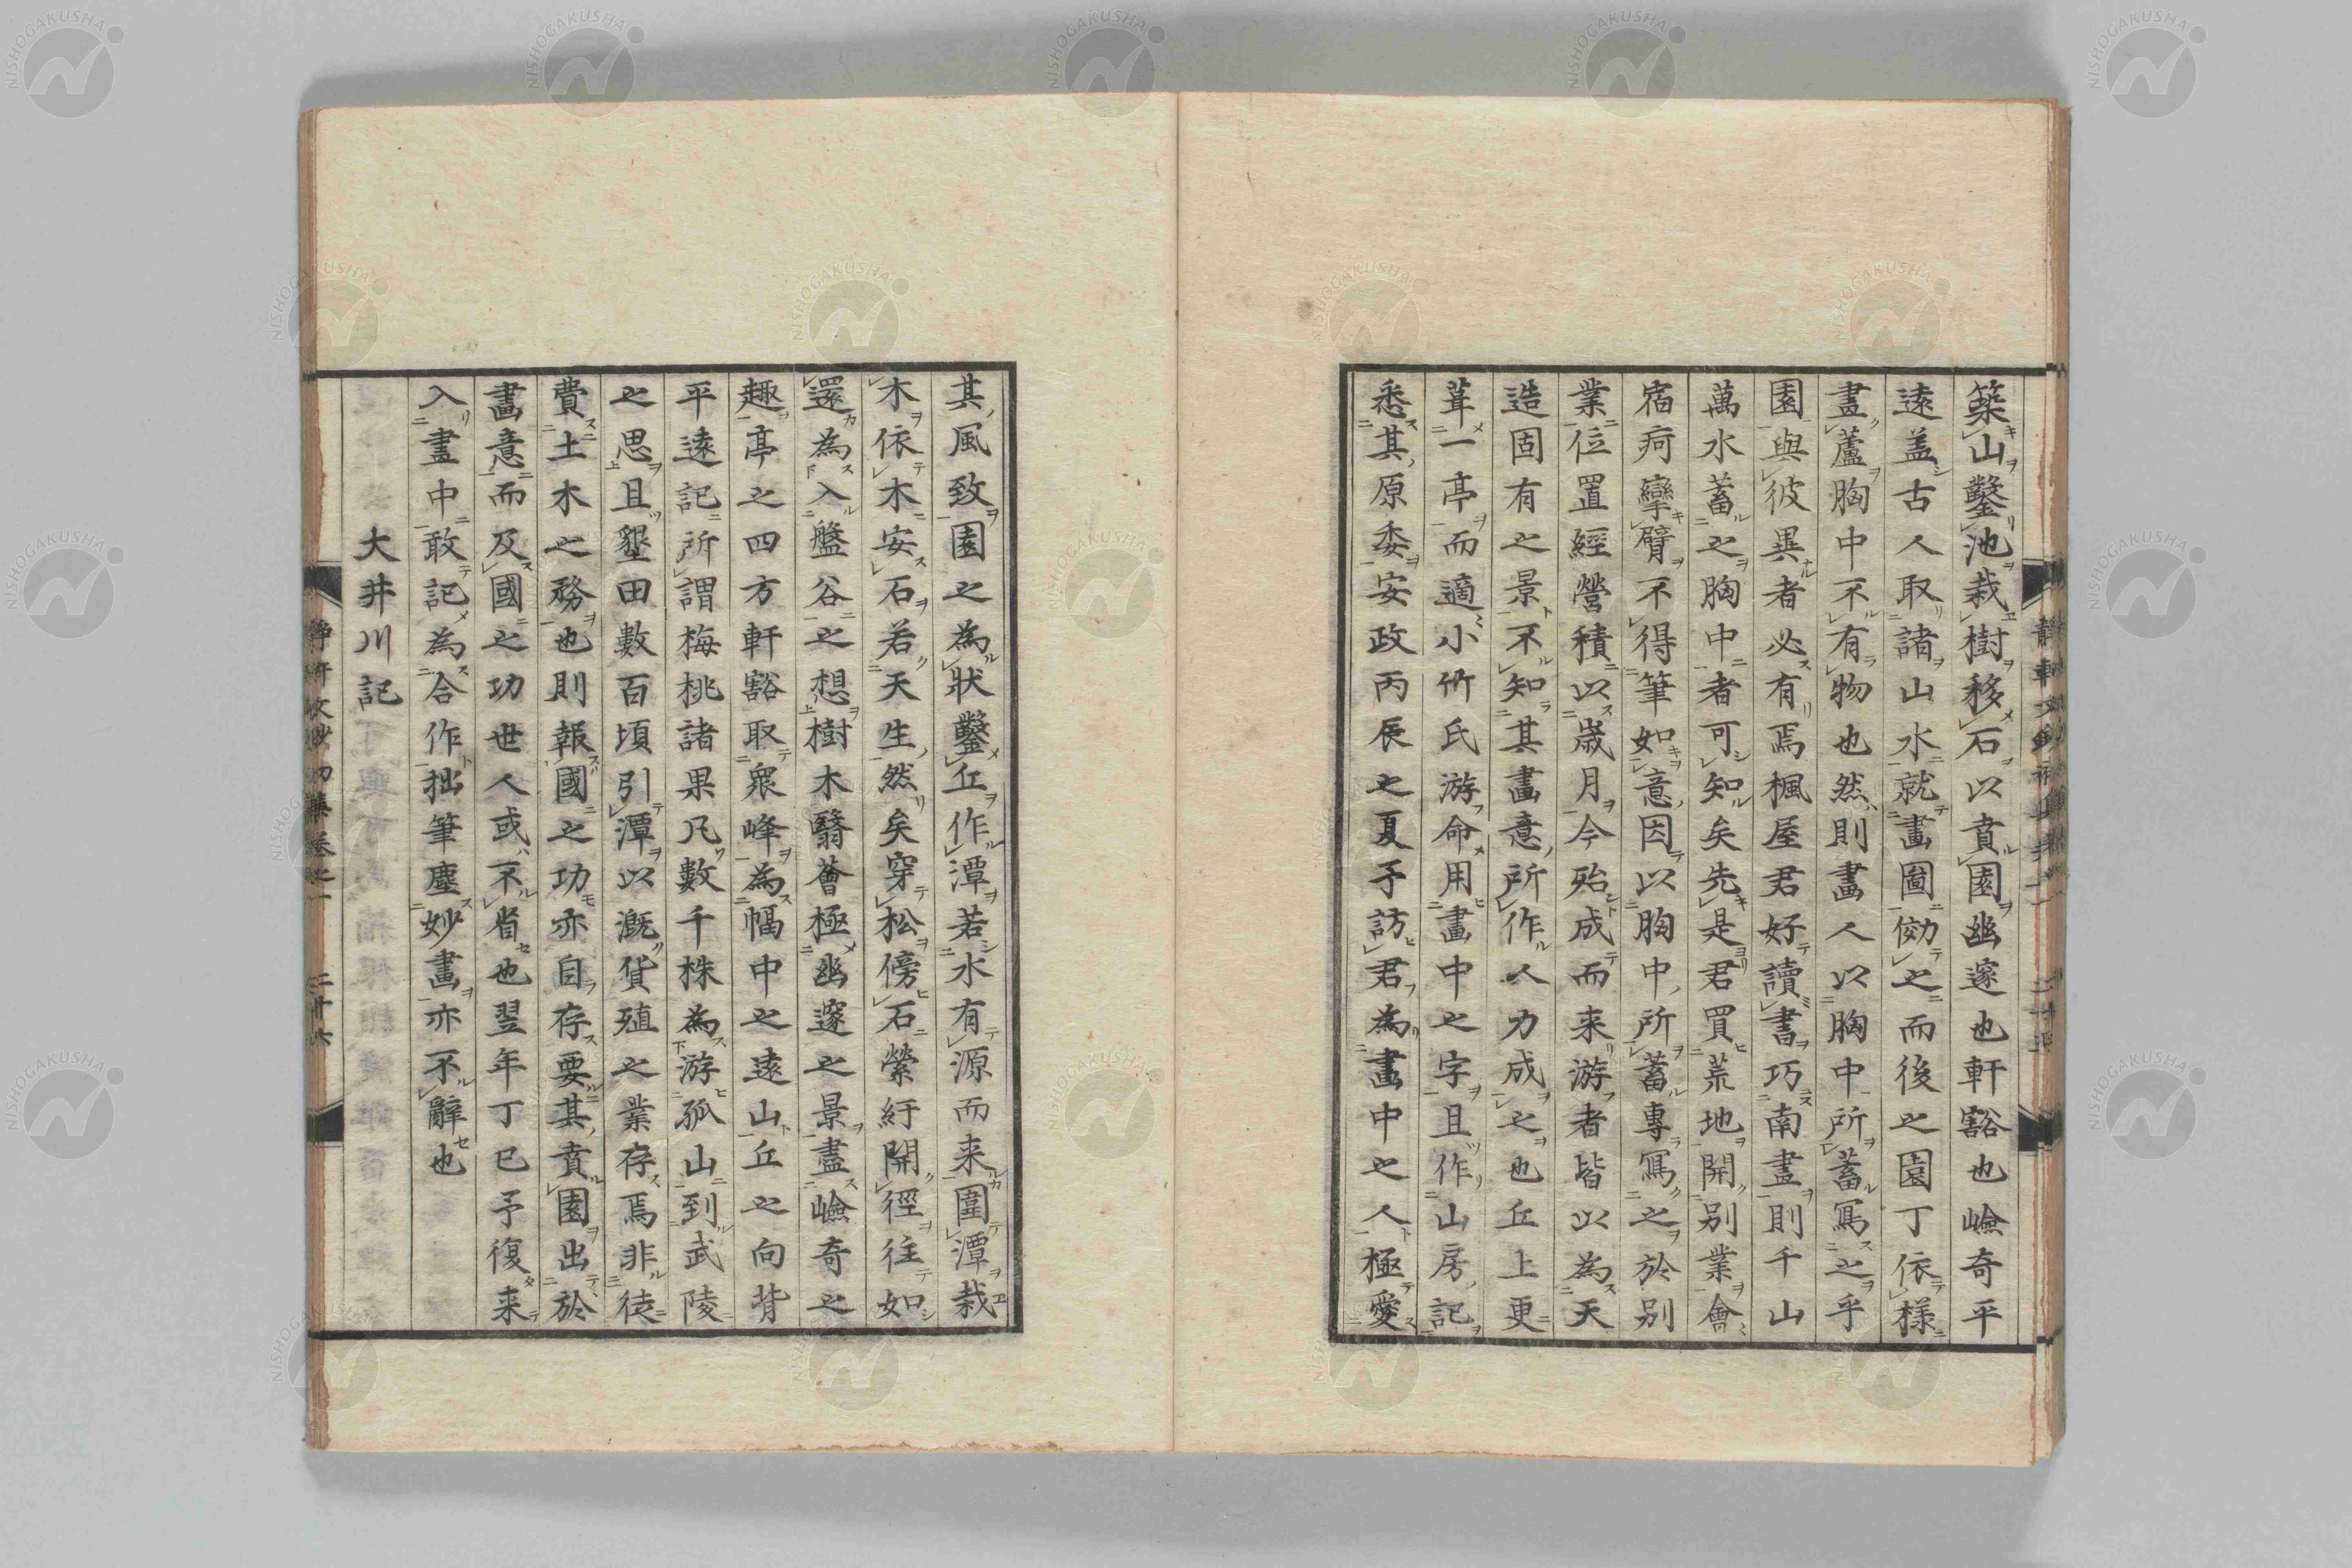 築山鑿池栽樹移石以賁園幽邃也軒豁也嶮奇平
遠盖古人取諸山水就畫圖傚之而後之園丁依樣
畫蘆胸中不有物也然則畫人以胸中所蓄寫之乎
園與彼異者必有焉楓屋君好讀書巧南畫則千山
萬水蓄之胸中者可知矣先是君買荒地開別業會
宿疴攣臂不得筆如意因以胸中所蓄專寫之於別
業位置經營積以歲月今殆成而来游者皆以為天
造固有之景不知其畫意所作人力成之也丘上更
葺一亭而適小竹氏游命用畫中之字且作山房記
悉其原委安政丙辰之夏予訪君為畫中之人極愛
其風致園之為狀鑿丘作潭若水有源而来圍潭栽
木依木安石若天生然矣穿松傍石縈紆開徑往如
還為入盤谷之想樹木翳薈極幽邃之景盡嶮奇之
趣亭之四方軒豁取衆峰為幅中之遠山丘之向背
平遠記所謂梅桃諸果凡數千株為游孤山到武陵
之思且墾田數百頃引潭以漑貨殖之業存焉非徒
費土木之務也則報國之功亦自存要其賁園出於
畫意而及國之功世人或不省也翌年丁巳予復来
入畫中敢記為合作拙筆塵妙畫亦不辭也
大井川記
NISHOGAKUSHA